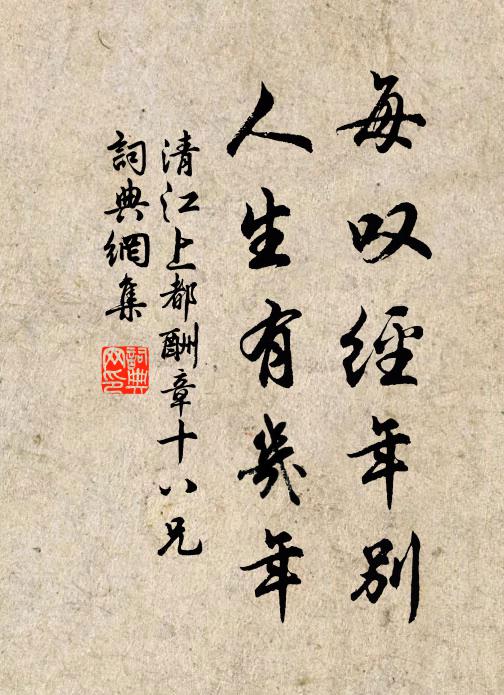 每叹經年别
人生有幾年
清江上都酬章十八兄
詞典網集
詞典网印